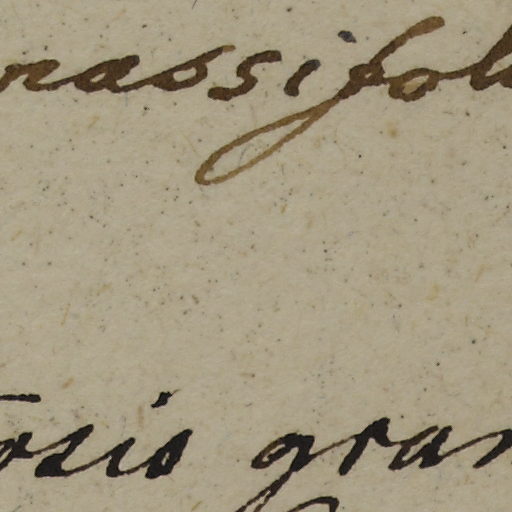 rassifoli
osis gran